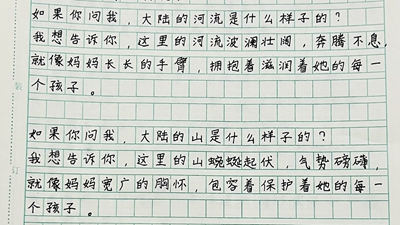 如果你问我，大陆的河流是什么样子的？
我想告诉你，这里的河流波澜壮阔，奔腾不息，
就像妈妈长长的手臂，拥抱着滋润着她的每一
个孩子。
如果你问我，大陆的山是什么样子的？
我想告诉你，这里的山蜿蜒起伏，气势磅礴，
就像妈妈宽广的胸怀，包容着保护着她的每一
个孩子。
装
订